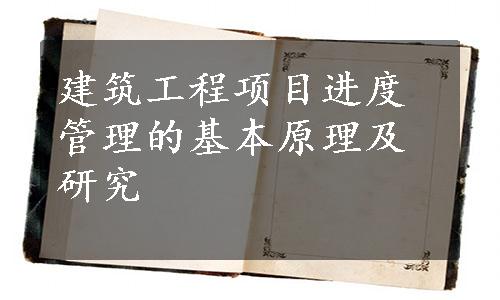 建筑工程项目进度
管理的基本原理及
研究